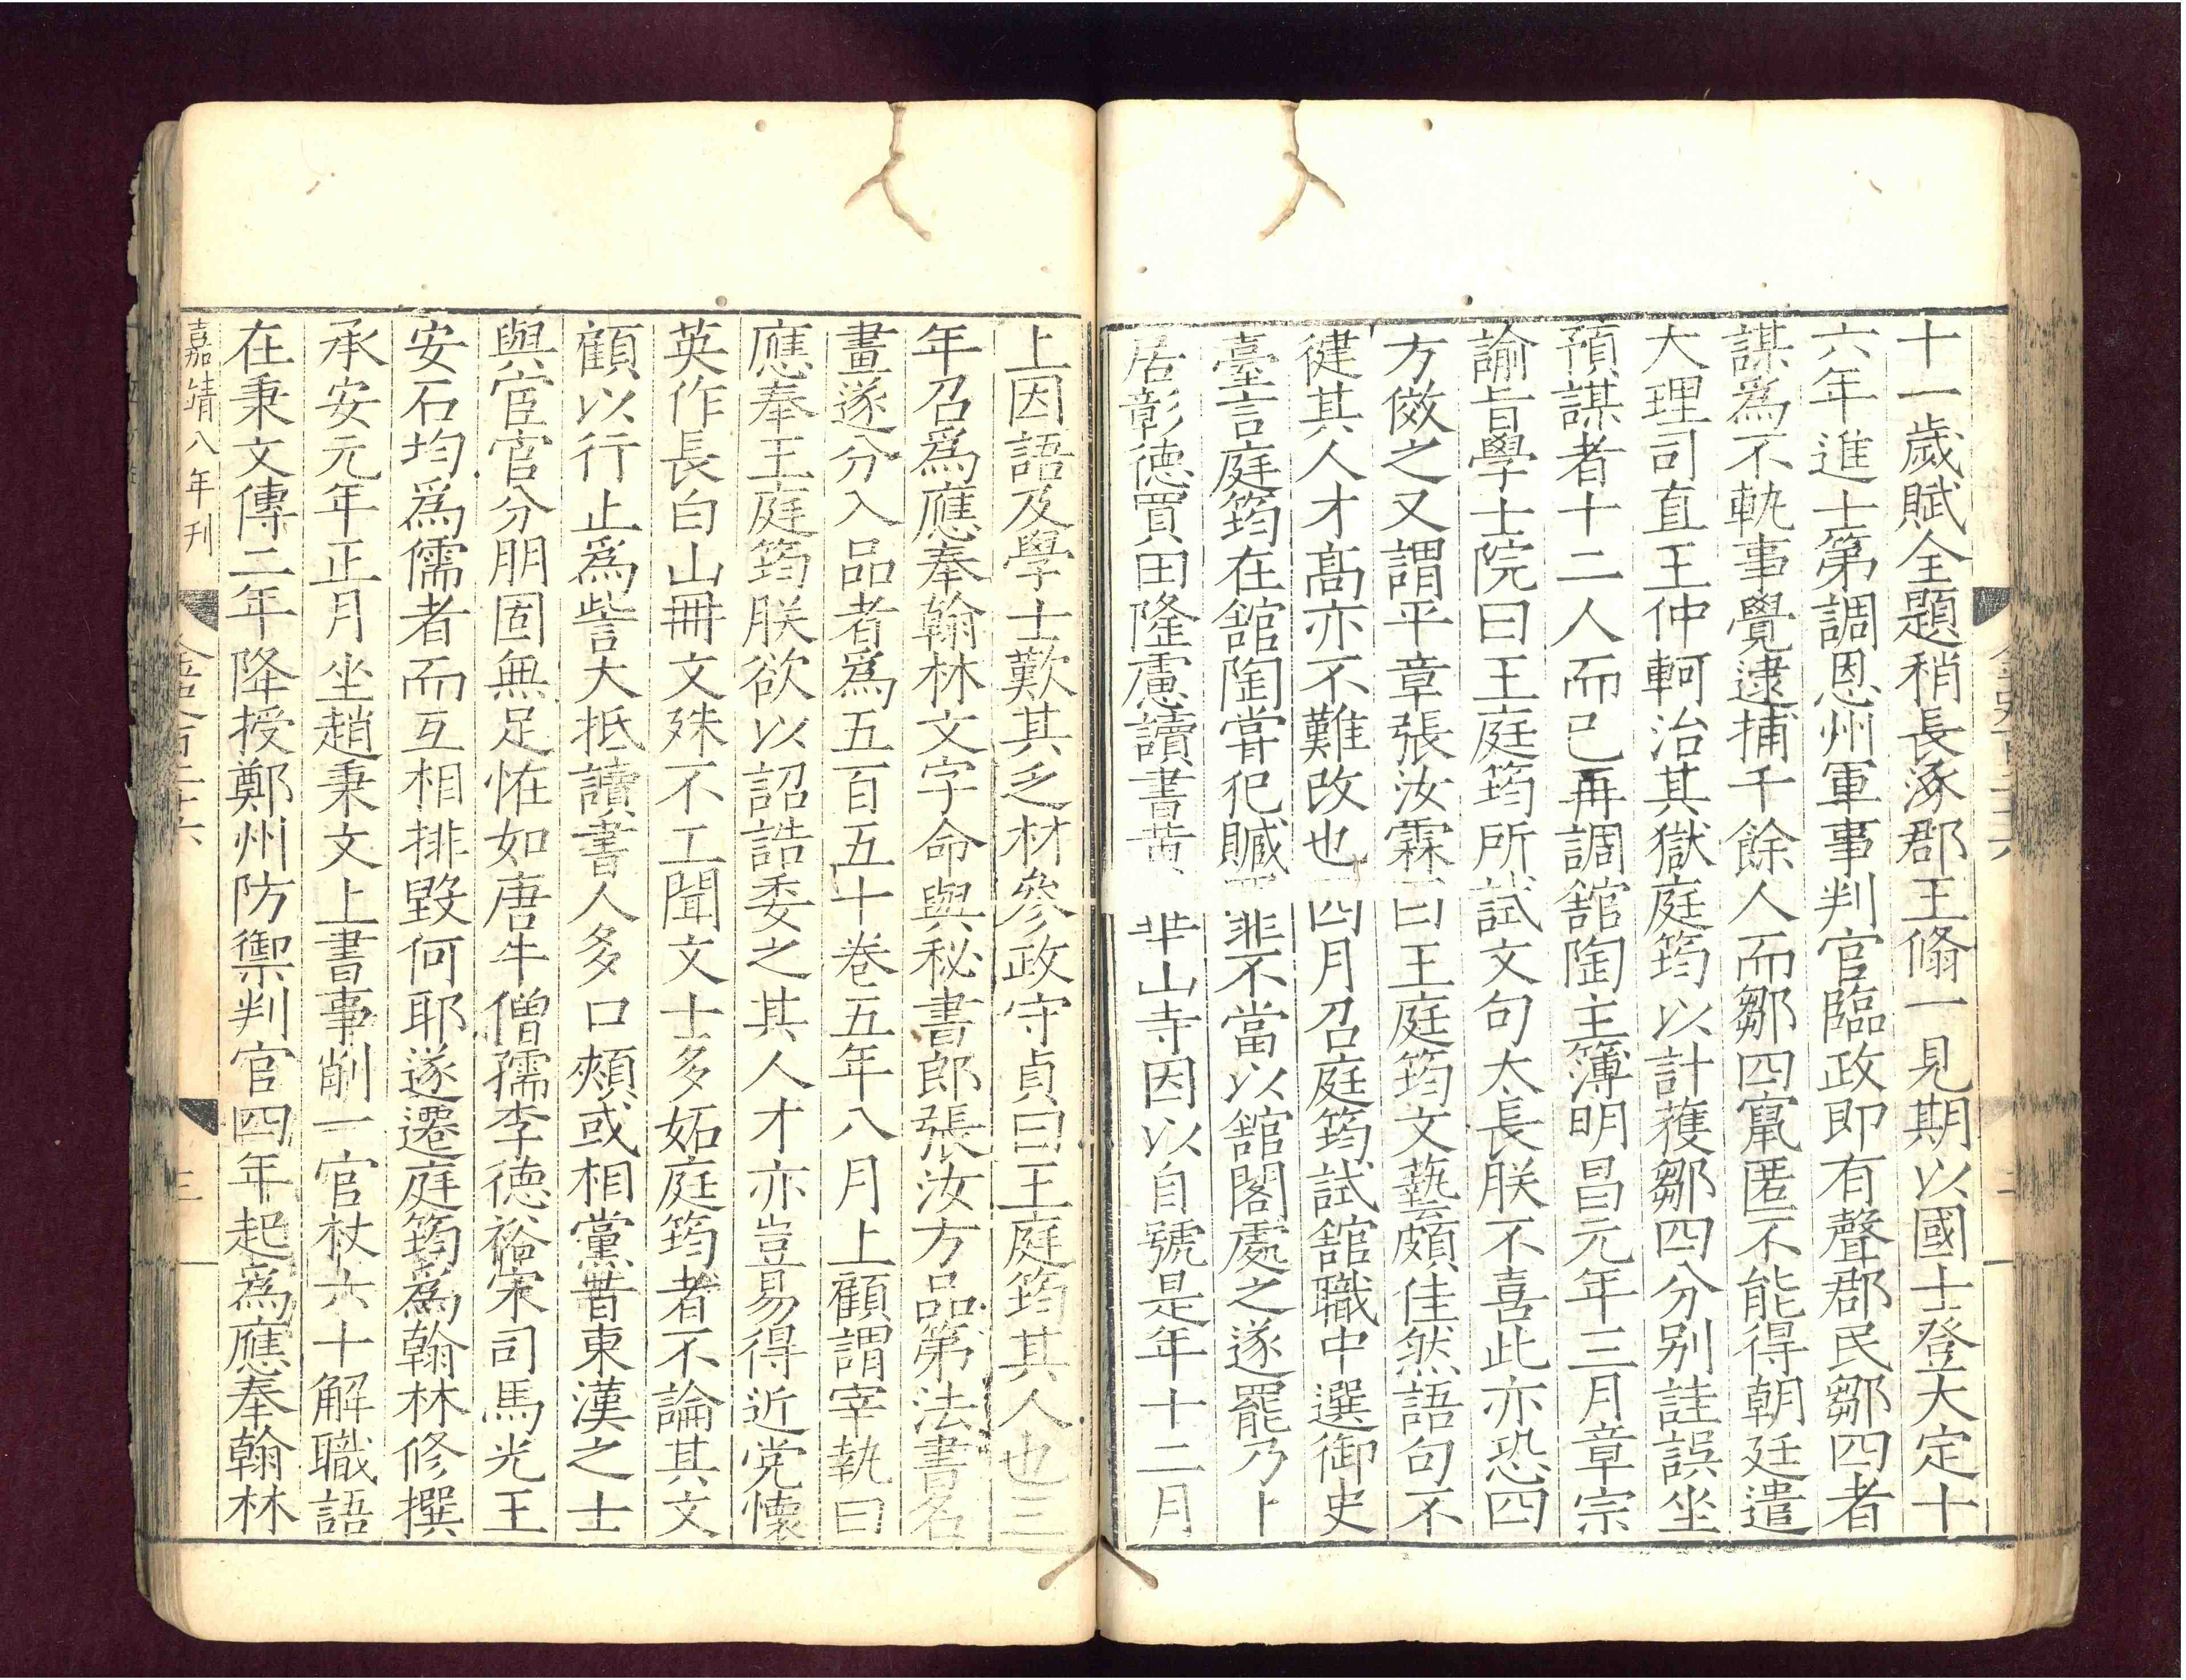 十一歲賦全題稍長涿郡王翛一見期以國士登大定十
六年進士第調恩州軍事判官臨政即有聲郡民鄒四者
謀爲不軌事覺逮捕千餘人而鄒四竄匿不能得朝廷遣
大理司直王仲軻治其獄庭筠以計獲鄒四分别詿誤坐
預謀者十二人而已再調舘陶主簿明昌元年三月章宗
諭旨學士院曰王庭筠所試文句太長朕不喜此亦恐四
方傚之又謂平章張汝霖曰王庭筠文藝頗佳然語句不
徤其人才髙亦不難改也四月召庭筠試舘職中選御史
臺言庭筠在舘陶甞犯贓罪不當以舘閣處之遂罷乃卜
居彰德買田隆慮讀書黄華山寺因以自號是年十二月
金史百二十六
二
上因語及學士歎其乏材參政守貞曰王庭筠其人也三
年召爲應奉翰林文字命與秘書郎張汝方品第法書名
畫遂分入品者爲五百五十卷五年八月上顧謂宰執曰
應奉王庭筠朕欲以詔誥委之其人才亦豈易得近党懷
英作長白山冊文殊不工聞文士多妬庭筠者不論其文
顧以行止爲訾大抵讀書人多口頰或相黨昔東漢之士
與宦官分朋固無足怪如唐牛僧孺李德裕宋司馬光王
安石均爲儒者而互相排毀何耶遂遷庭筠爲翰林修撰
承安元年正月坐趙秉文上書事削一官杖六十解職語
在秉文傳二年降授鄭州防禦判官四年起爲應奉翰林
嘉靖八年刊
金史百二十六
三